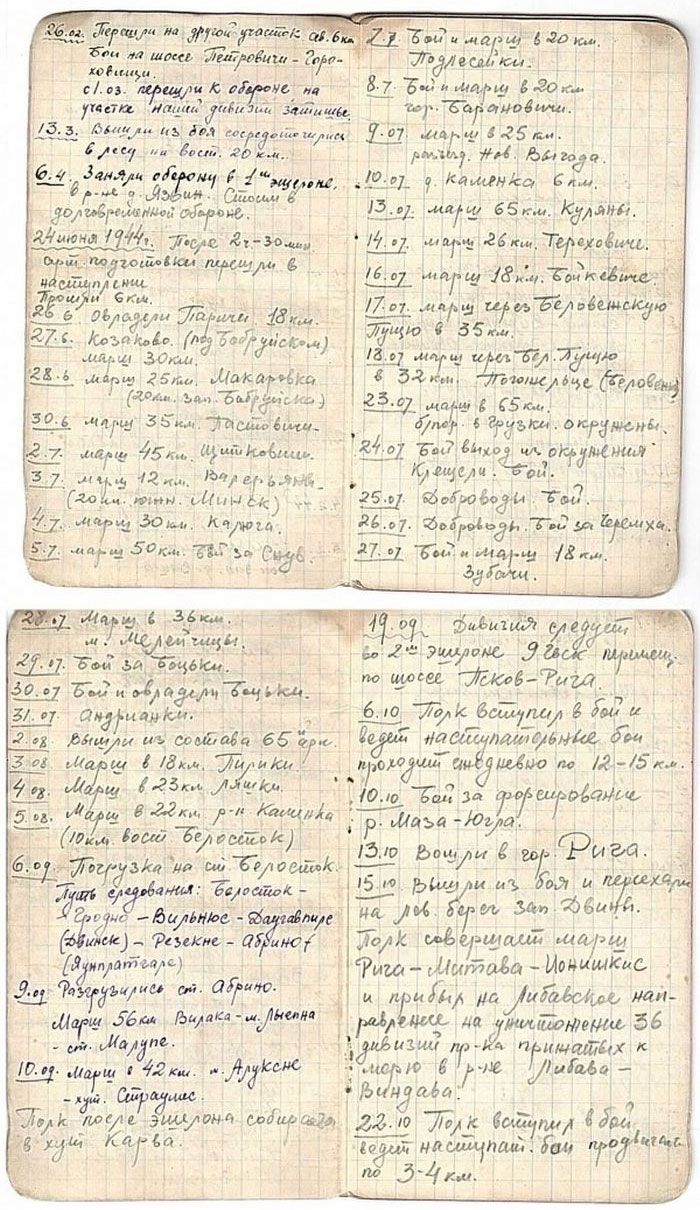 26.02. Перешли на другой участок ок. 6 км
Бои на шоссе Петровичи - Горо-
ховищи.
с 1.03. перешли к обороне на
участке нашей дивизии затишье.
13.3. Вышли из боя сосредоточились
в лесу на вост. 20 км.
6.4. Заняли оборону в 1ом эшероне,
в р-не д. Язвин. Стоим в
долговременной обороне.
24 июня 1944г. После 2ч-30 мин.
арт. подготовки перешли в
наступление
Прошли 6 км.
26 6 Овладели Паричи 18 км.
27.6. Козаково. (под Бобруйском)
марш 30 км.
28.6 марш 25 км. Макаровка
(20 км. зап. Бобруйска)
30.6 марш 35 км. Пастовичи-
2.7. марш 45 км. Щитковичи.
3.7. марш 12 км. Валерьяны-
(20 км. южн. Минск)
4.7. марш 30 км. Калюга.
5.7. марш 50 км. Бой за Снув.
7.7 Бой и марш в 20 км.
Подлесейки.
8.7. Бой и марш в 20 км
гор. Барановичи.
9.07 марш в 25 км.
разъезд. Нов. Выгода.
10.07 д. Каменка 6 км.
13.07. марш 65 км. Куляны.
14.07. марш 26 км. Тереховиче.
16.07 марш 18 км. Бойкевиче.
17.07. марш через Беловежскую
Пущю в 35 км.
18.07 марш через Бел. Пущю
в 32 км. Погожельце (Беловеж)
23.07 марш в 65 км.
в Грузки. окружены.
24.07 Бой выход из окружения
Клещели. Бой.
25.07 Доброводы. Бой.
26.07. Доброводы. Бой за Черемха.
27.07 Бой и марш 18 км.
Зубачи.
28.07 Марш в 36 км.
м. Мелейчицы.
29.07. Бой за Боцьки.
30.07 Бой и овладели Боцьки.
31.07. Андрианки.
2.08. Вышли из состава 65 ой арм.
3.08. Марш в 18 км. Пилики.
4.08. Марш в 23 км. Ляшки.
5.08. Марш в 22 км р-н Каменка
(10 км. вост Белосток)
6.09. Погрузка на ст Белосток.
Путь следования: Белосток-
Гродно - Вильнюс - Даугавпилс
(Двинск) - Резекне - Абрино
(Яунлатгале)
9.09 Разгрузились ст. Абрино.
Марш 56 км Вилака - м. Лиепна
- ст. Малупе.
10.09. Марш в 42 км. м. Алуксне
- хут. Страумс.
Полк после эшерона собирается
в хут Карва.
19.09 Дивизия следует
во 2ом эшероне перемещ.
по шоссе Псков-Рига.
6.10 Полк вступил в бой и
ведет наступательные бои
проходит ежедневно по 12-15 км.
10.10 Бой за форсирование
р. Маза-Югла.
13.10 Вошли в гор. Рига.
15.10 Вышли из боя и переехали
на лев. берег зап. Двины.
Полк совершает марш
Рига-Митава-Ионишкис
и прибыл на Либавское нап-
равление на уничтожение 36
дивизий пр-ка прижатых к
морю в р-не Либава-
Виндава.
22.10 Полк вступил в бой
ведет наступат. бои продвигаясь
по 3-4 км.